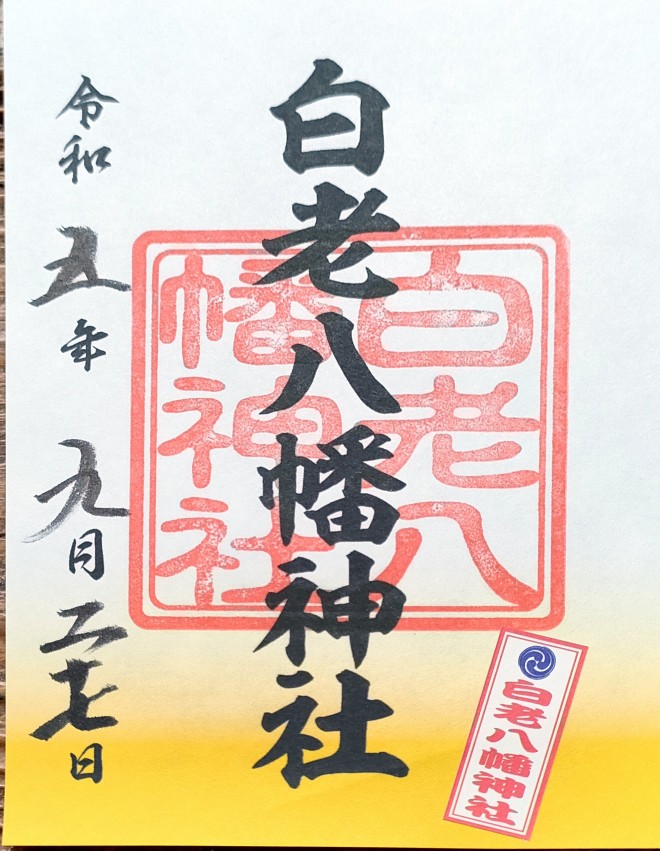 白老八幡神社
白老八
幡神社
令和五年九月二十七日
白老八幡神社